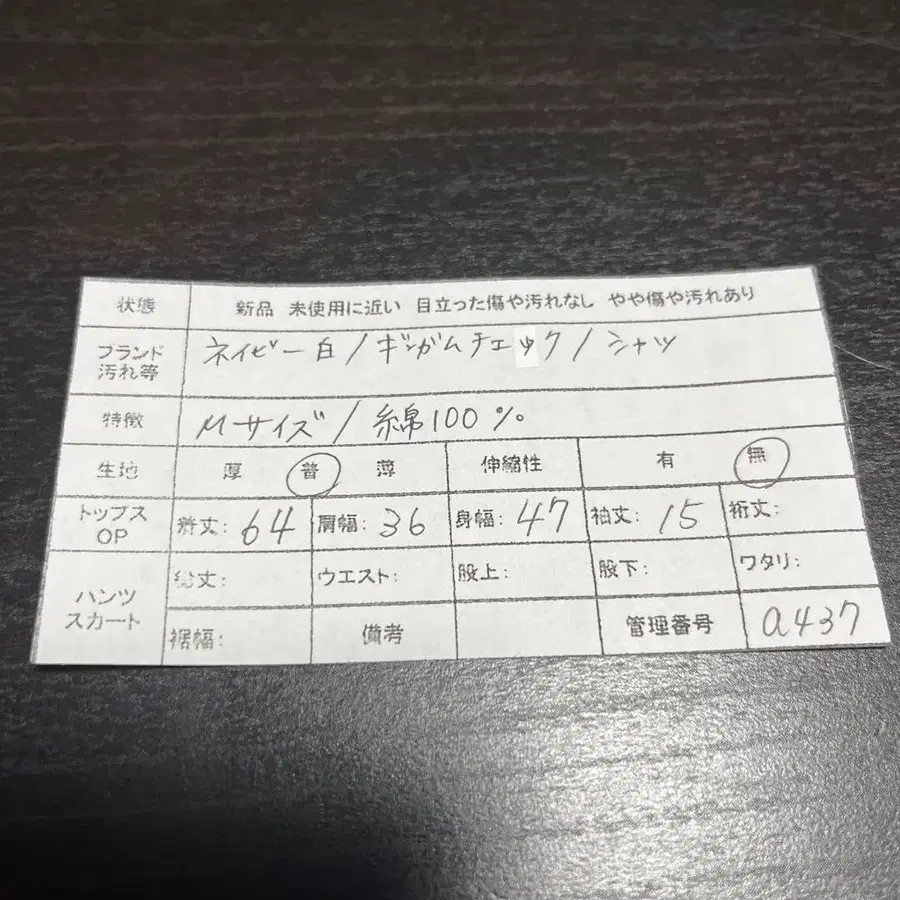 状態 新品 未使用に近い 目立った傷や汚れなし やや傷や汚れあり
ブランド 汚れ等 ネイビー白/ギンガムチェック/シャツ
特徴 Mサイズ/綿100%
生地 厚 普 薄 伸縮性 有 無
トップス OP 着丈: 64 肩幅: 36 身幅: 47 袖丈: 15 裄丈:
パンツ スカート 総丈: ウエスト: 股上: 股下: ワタリ:
裾幅: 備考 管理番号 a437